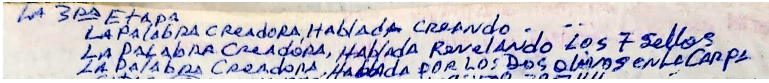 LA 3RA ETAPA
LA PALABRA CREADORA, HABLADA CREANDO . . .
LA PALABRA CREADORA, HABLADA REVELANDO LOS 7 SELLOS
LA PALABRA CREADORA, HABLADA POR LOS DOS OLIVOS EN LA CARPA